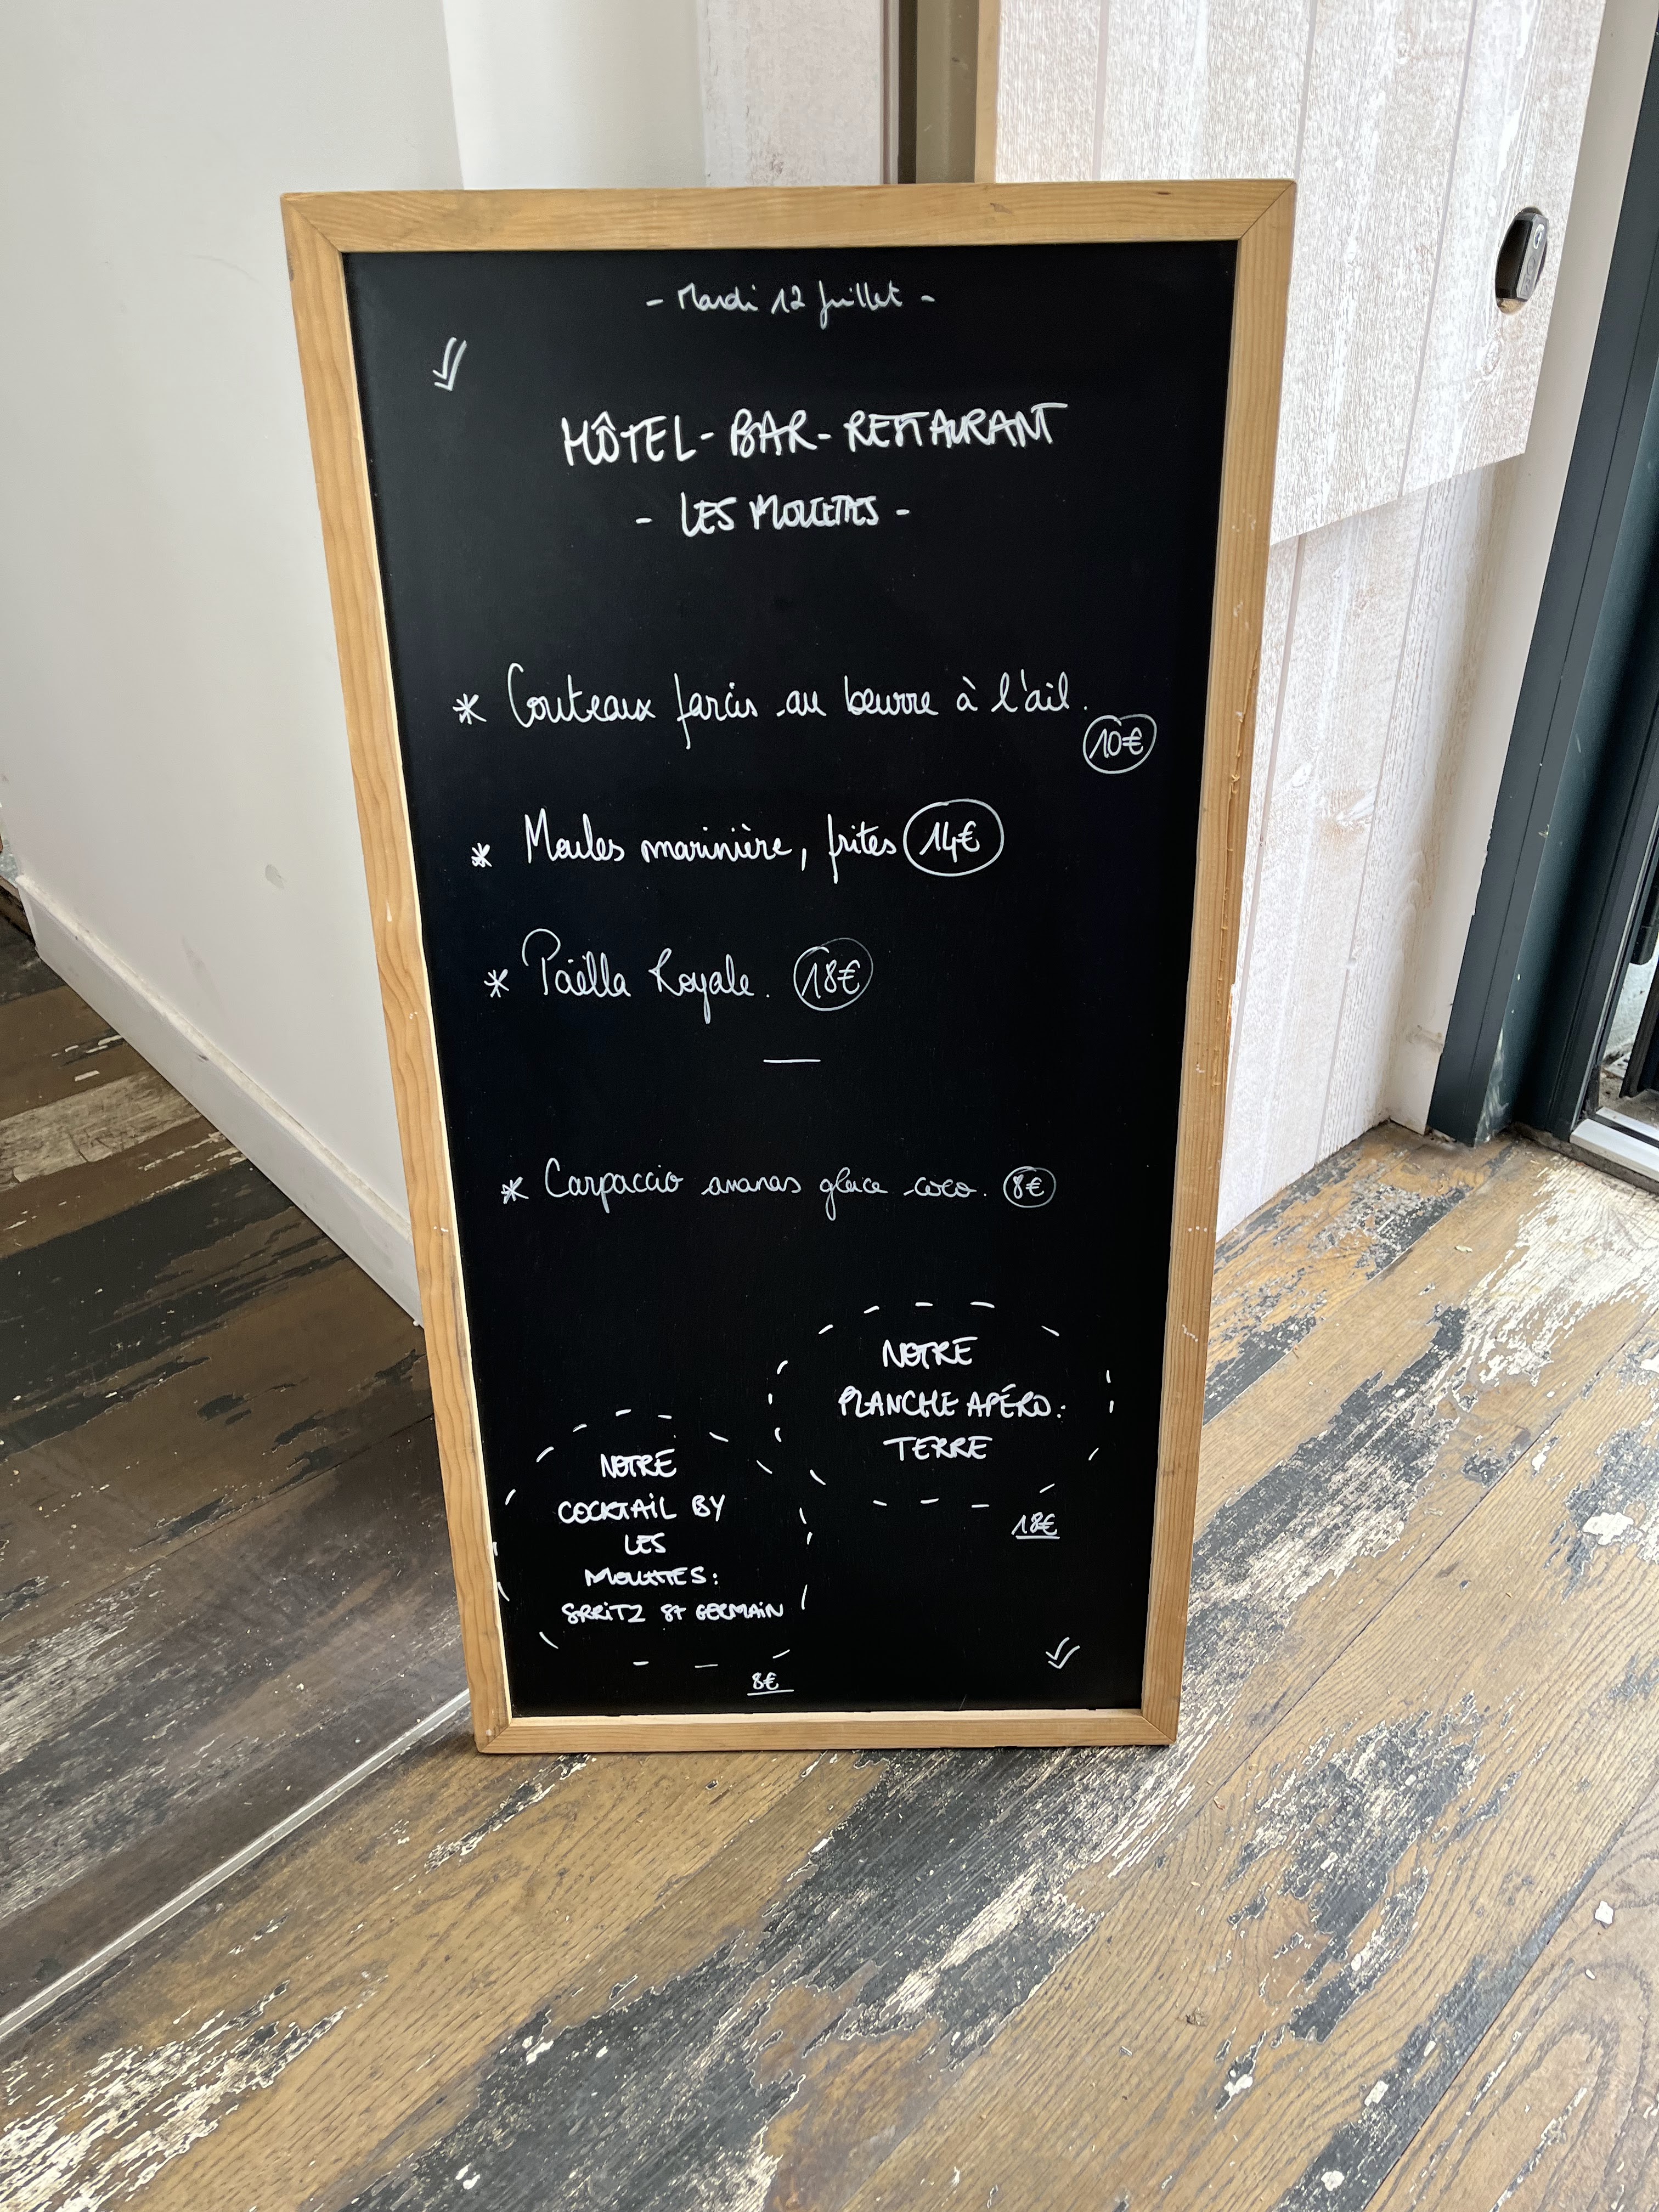 - Mardi 12 Juillet -
HÔTEL - BAR - RESTAURANT
- LES MOUETTES -
* Couteaux farcis au beurre à l'ail.
10€
* Moules marinière, frites 14€
* Paëlla Royale. 18€
* Carpaccio ananas glace coco. 8€
NOTRE
PLANCHE APÉRO:
TERRE
18€
NOTRE
COCKTAIL BY
LES
MOUETTES:
SPRITZ ST GERMAIN
8€